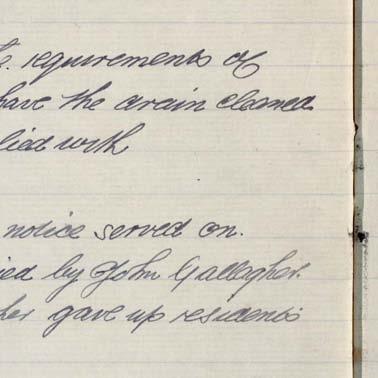 requirements of
have the drain cleaned
with
notice served on.
by John Gallagher.
gave up residents